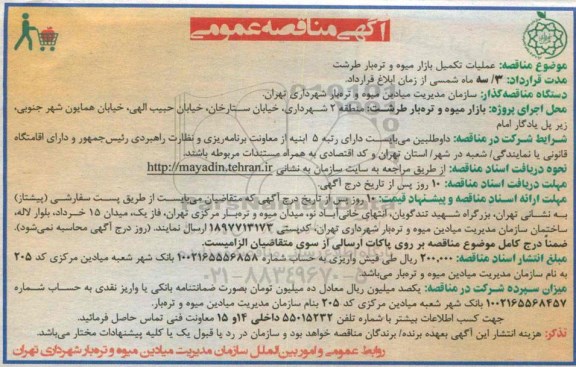 آگهی مناقصه عمومی
موضوع مناقصه: عملیات تکمیل بازار میوه و تره‌بار طرشت
مدت قرارداد: ۳/ سه ماه شمسی از زمان ابلاغ قرارداد.
دستگاه مناقصه‌گذار: سازمان مدیریت میادین میوه و تره‌بار شهرداری تهران.
محل اجرای پروژه: بازار میوه و تره‌بار طرشت: منطقه ۲ شهرداری، خیابان ستارخان، خیابان حبیب الهی، خیابان همایون شهر جنوبی،
زیر پل یادگار امام
شرایط شرکت در مناقصه: داوطلبین می‌بایست دارای رتبه ۵ ابنیه از معاونت برنامه‌ریزی و نظارت راهبردی رئیس‌جمهور و دارای اقامتگاه
قانونی یا نمایندگی/ شعبه در شهر/ استان تهران و کد اقتصادی به همراه مستندات مربوطه باشند.
نحوه دریافت اسناد مناقصه: از طریق مراجعه به سایت سازمان به نشانی http://mayadin.tehran.ir
مهلت دریافت اسناد مناقصه: ۱۰ روز پس از تاریخ درج آگهی
مهلت ارائه اسناد مناقصه و پیشنهاد قیمت: ۱۰ روز پس از تاریخ درج آگهی که متقاضیان می‌بایست از طریق پست سفارشی (پیشتاز)
به نشانی تهران، بزرگراه شهید تندگویان، انتهای خانی‌آباد نو، میدان میوه و تره‌بار مرکزی تهران، فاز یک، میدان ۱۵ خرداد، بلوار لاله،
ساختمان سازمان مدیریت میادین میوه و تره‌بار شهرداری تهران، کدپستی ۱۸۹۷۷۱۳۱۷۳ ارسال نمایند. (روز درج آگهی محاسبه نمی‌شود).
ضمنا درج کامل موضوع مناقصه بر روی پاکات ارسالی از سوی متقاضیان الزامیست.
مبلغ انتشار اسناد مناقصه: ۲۰۰,۰۰۰ ریال طی فیش واریزی به حساب شماره ۱۰۰۲۱۶۵۵۵۶۸۵۸ بانک شهر شعبه میادین مرکزی کد ۲۰۵
به نام سازمان مدیریت میادین میوه و تره‌بار می‌باشد.
میزان سپرده شرکت در مناقصه: یکصد میلیون ریال معادل ده میلیون تومان بصورت ضمانتنامه بانکی یا واریز نقدی به حساب شماره
۱۰۰۲۱۶۵۵۶۸۴۵۷ بانک شهر شعبه میادین مرکزی کد ۲۰۵ بنام سازمان مدیریت میادین میوه و تره‌بار.
جهت کسب اطلاعات بیشتر با شماره تلفن ۵۵۰۱۵۲۳۲ داخلی ۱۴ و ۱۵ معاونت فنی تماس حاصل فرمائید.
تذکر: هزینه انتشار این آگهی بعهده برنده/ برندگان مناقصه خواهد بود و سازمان در رد یا قبول یک یا کلیه پیشنهادات مختار می‌باشد.
روابط عمومی و امور بین‌الملل سازمان مدیریت میادین میوه و تره‌بار شهرداری تهران